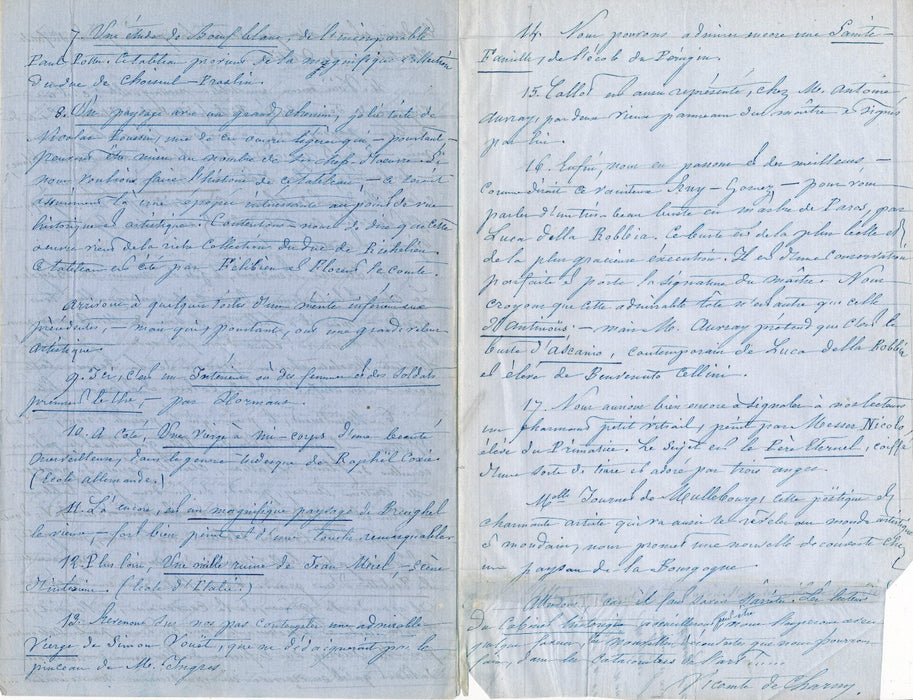 7. Une étude de Bœuf blanc, de l'incomparable
Paul Potter. Ce tableau provient de la magnifique collection
du duc de Choiseul-Praslin.
8. Un paysage avec un grand chemin, jolie toile de
Nicolas Poussin, une de ces œuvres légères qui, – pourtant –
pourrait être mise au nombre de ses chefs-d'œuvre. Si
nous voulions faire l'histoire de ce tableau, – ce serait
assurément là une épopée intéressante au point de vue
historique et artistique. Contentons-nous de dire que cette
œuvre vient de la riche collection du duc de Richelieu.
Ce tableau est cité par Félibien et Florent le Comte.
Arrivons à quelques toiles d'un mérite inférieur aux
précédentes, – mais qui, pourtant, ont une grande valeur
artistique.
9. Ici, c'est un Intérieur où des femmes et des soldats
prennent le thé, – par Hormans.
10. A coté, Une Vierge à mi-corps d'une beauté
merveilleuse, dans le genre tudesque de Raphël
(École allemande.)
11. Là encore, est un magnifique paysage de Breughel
le vieux, – fort bien peint et d'une touche remarquable.
12. Plus loin, Une vieille ruine de Jean Miel, – Scène
(École d'Italie.)
13. Revenons sur nos pas contempler une admirable
Vierge de Simon Vouët, que ne dédaignerait pas le
pinceau de M. Ingres.
14. Nous pouvons admirer encore une Sainte-
Famille, de l'école du Pérugin.
15. Callot est aussi représenté, chez M. Antoine
Auvray, par deux vieux panneaux du maître et signés
par lui.
16. Enfin, nous en passons et des meilleurs –
comme disait ce vaniteux Ruy-Gomez – pour vous
parler d'un très-beau buste en marbre de Paros, par
Luca della Robbia. Ce buste est de la plus belle et
de la plus gracieuse exécution. Il est d'une conservation
parfaite et porte la signature du maître. Nous
croyons que cette admirable tête n'est autre que celle
d'Antinoüs – mais M. Auvray prétend que c'est le
buste d'Ascanio, contemporain de Luca della Robbia
et élève de Benvenuto Cellini.
17. Nous aurions bien encore à signaler à nos lecteurs
un charmant petit vitrail, peint par Messer Nicolo,
élève du Primatice. Le sujet est le Père Eternel, coiffé
d'une sorte de tiare et adoré par trois anges.
Melle Journet de Mullebourg, cette poëtique et
charmante artiste qui va aussi se révéler au monde artistique
et mondain, nous promet une nouvelle découverte chez
un paysan de la Bourgogne.
Attendons, car il faut savoir s'arrêter. Les lecteurs
du Cabinet historique accueilleront peut-être, nous l'espérons, avec
quelque faveur les nouvelles découvertes que nous pourrons
faire dans les catacombes de l'art ......
Vicomte de Charny